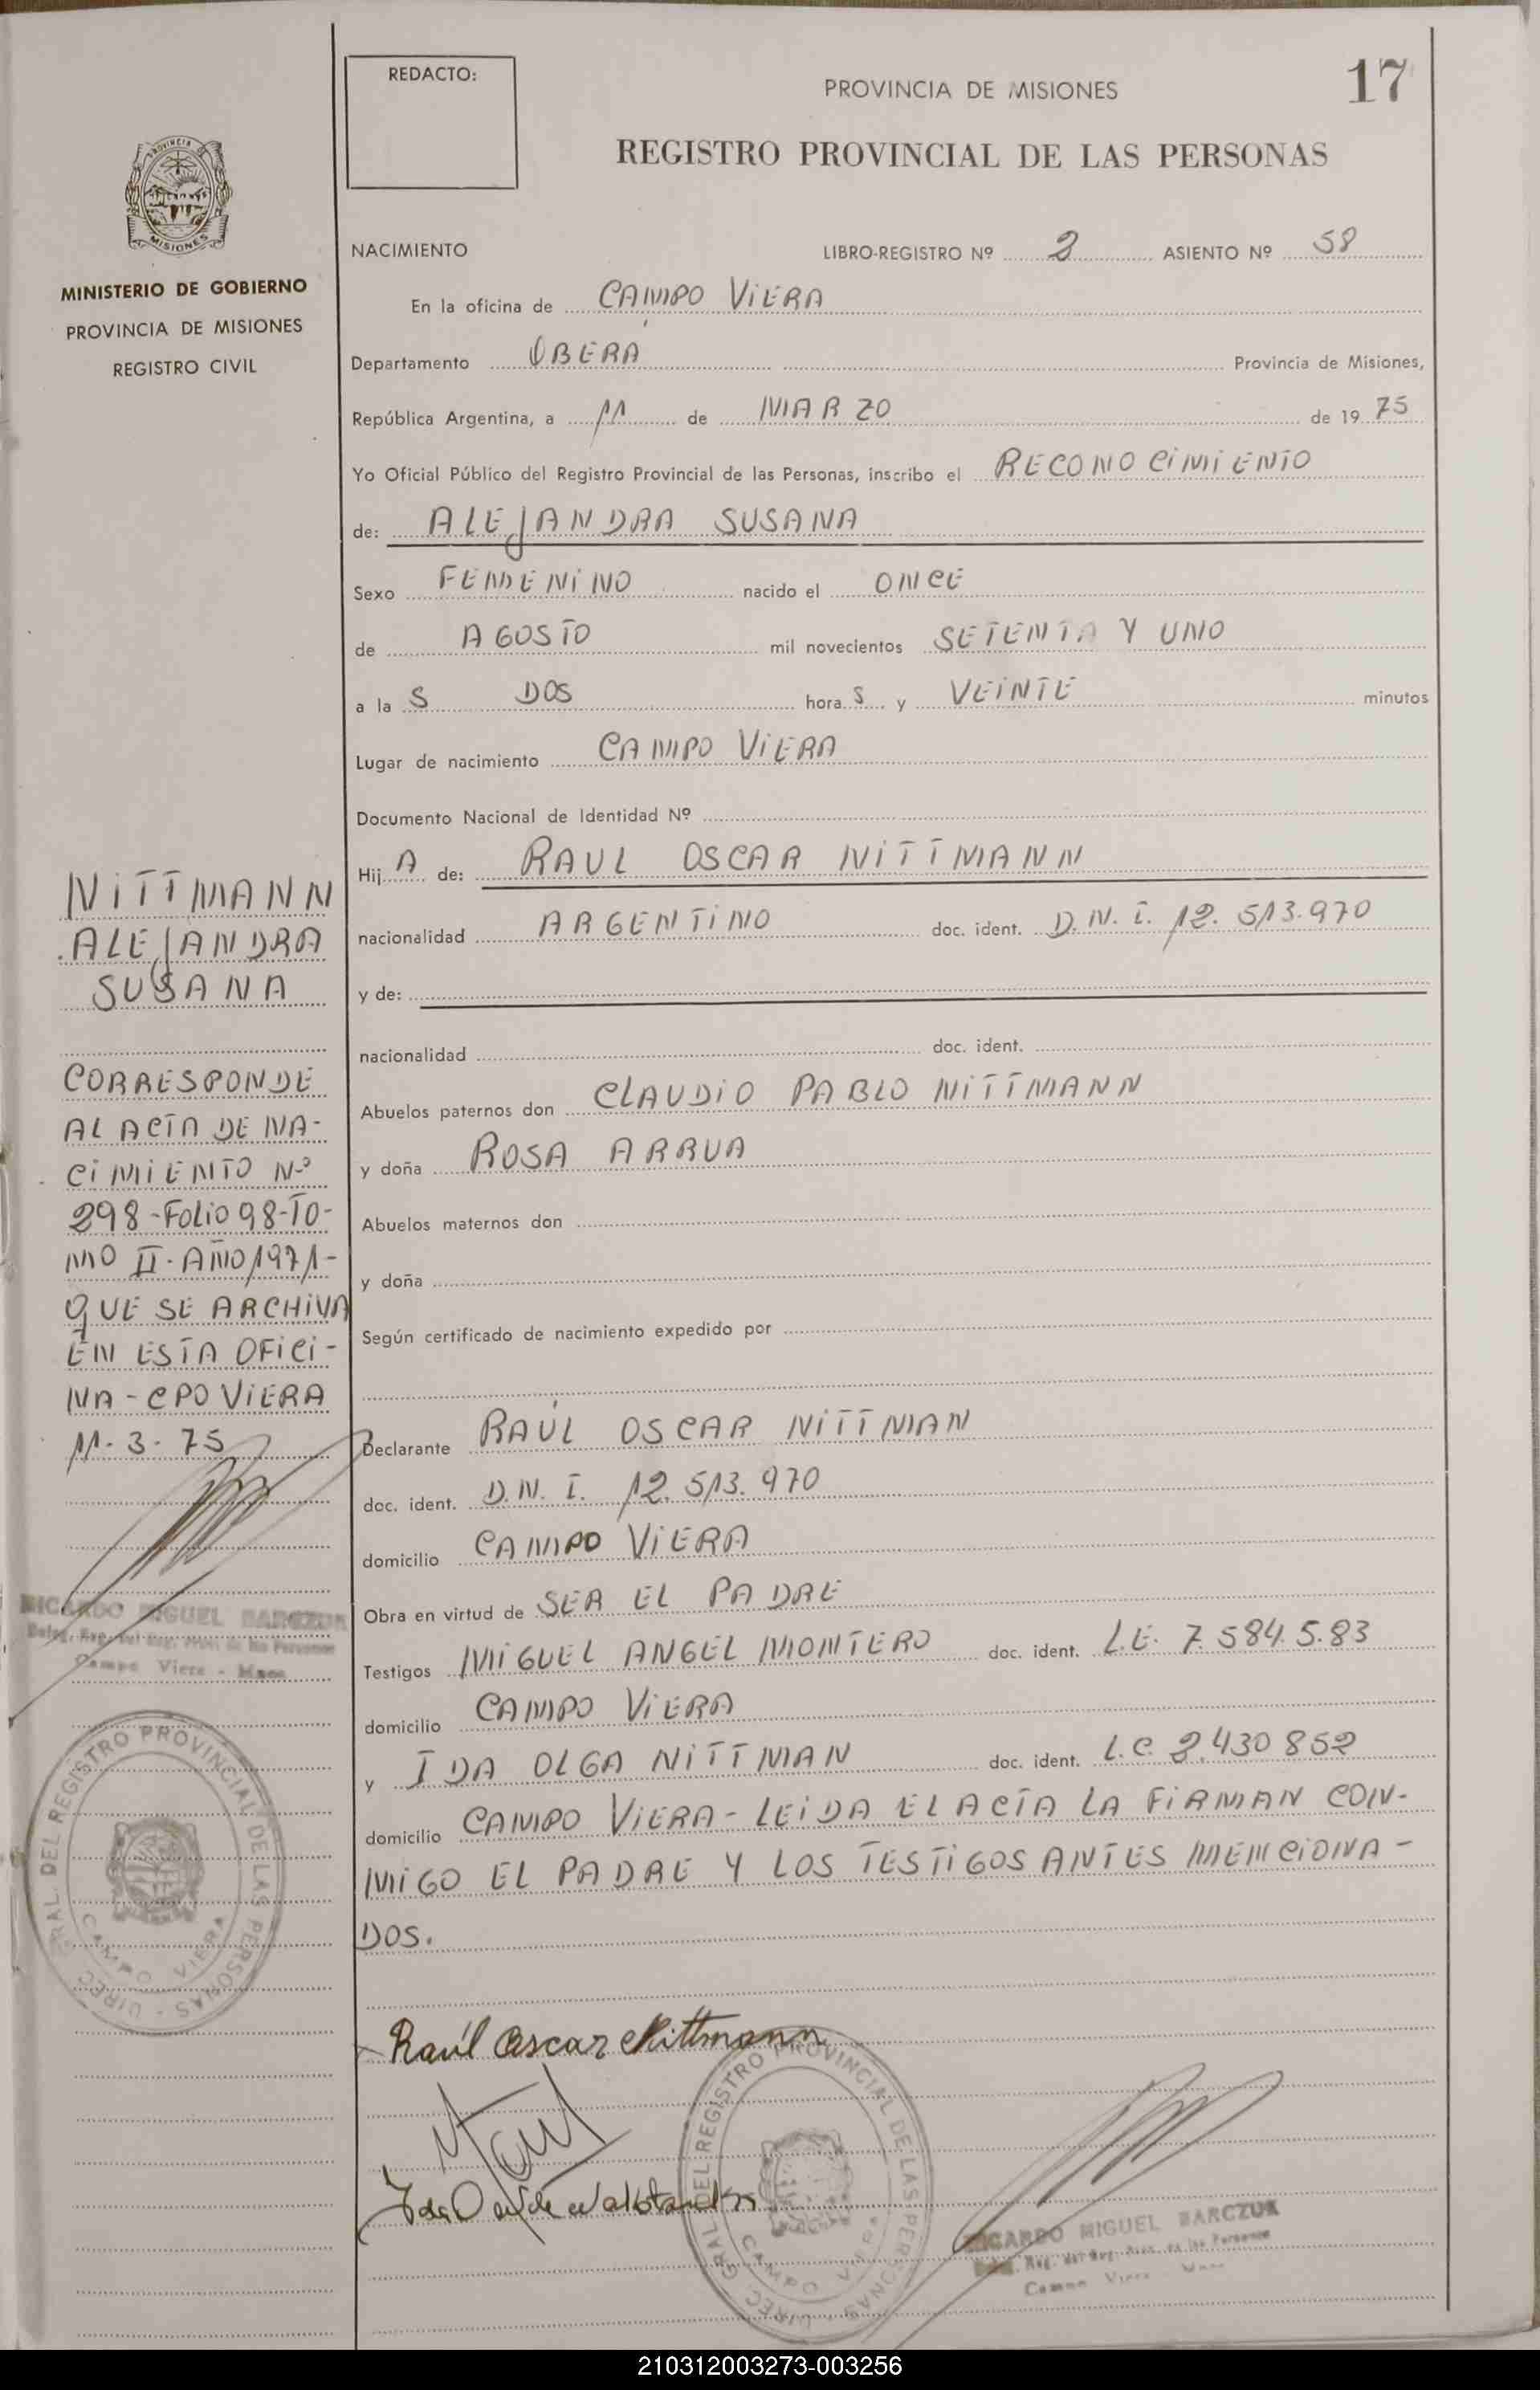 REDACTO:
PROVINCIA DE MISIONES
17
REGISTRO PROVINCIAL DE LAS PERSONAS
PROVINCIA
MISIONES
MINISTERIO DE GOBIERNO
PROVINCIA DE MISIONES
REGISTRO CIVIL
NACIMIENTO LIBRO-REGISTRO Nº 2 ASIENTO Nº 58
En la oficina de CAMPO VIERA
Departamento OBERÁ Provincia de Misiones,
República Argentina, a 11 de MARZO de 1975
Yo Oficial Público del Registro Provincial de las Personas, inscribo el RECONOCIMIENTO
de: ALEJANDRA SUSANA
Sexo FEMENINO nacido el ONCE
de AGOSTO mil novecientos SETENTA Y UNO
a la S DOS hora S y VEINTE minutos
Lugar de nacimiento CAMPO VIERA
Documento Nacional de Identidad Nº
Hij A de: RAUL OSCAR NITTMANN
nacionalidad ARGENTINO doc. ident. D.N.I. 12.513.970
y de:
nacionalidad doc. ident.
Abuelos paternos don CLAUDIO PABLO NITTMANN
y doña ROSA ARRUA
Abuelos maternos don
y doña
Según certificado de nacimiento expedido por
Declarante RAÚL OSCAR NITTMAN
doc. ident. D.N.I. 12.513.970
domicilio CAMPO VIERA
Obra en virtud de SER EL PADRE
Testigos MIGUEL ANGEL MONTERO doc. ident. L.E. 7.584.5.83
domicilio CAMPO VIERA
y IDA OLGA NITTMAN doc. ident. L.C. 2.430852
domicilio CAMPO VIERA - LEIDA EL ACTA LA FIRMAN CON-
MIGO EL PADRE Y LOS TESTIGOS ANTES MENCIONA-
DOS.
NITTMANN
ALEJANDRA
SUSANA
CORRESPONDE
AL ACTA DE NA-
CIMIENTO Nº
298-FOLIO 98-TO-
MO II-AÑO 1971-
QUE SE ARCHIVA
EN ESTA OFICI-
NA - CPO VIERA
11-3-75
RICARDO MIGUEL BARCZUK
Campo Viera - Mnes
DIREC. GRAL. DEL REGISTRO PROVINCIAL DE LAS PERSONAS
CAMPO VIERA
Raúl Oscar Nittmann
DIREC. GRAL. DEL REGISTRO PROVINCIAL DE LAS PERSONAS
CAMPO VIERA
RICARDO MIGUEL BARCZUK
Campo Viera
210312003273-003256